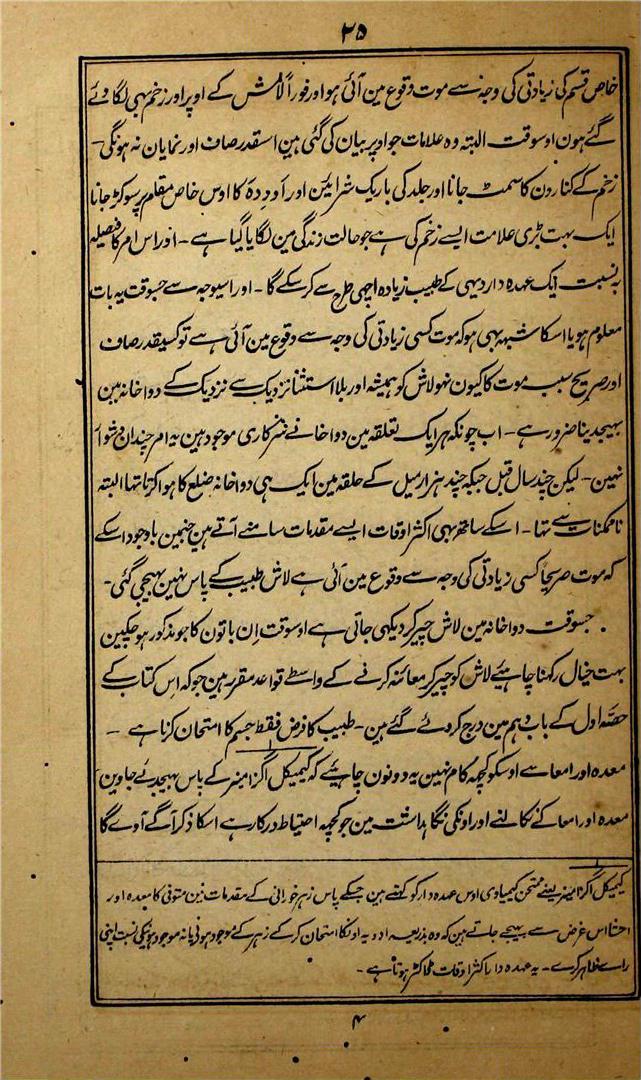 ۲۵
خاص قسم کی زیادتی کی وجہ سے موت وقوع مین آئی ہو اور فوراً لاش کے اوپر اور زخم بہی لگا دئے
گئے ہون اوسوقت البتہ وہ علامات جو اوپر بیان کی گئی ہین اسقدر صاف اور نمایان نہ ہونگی۔
زخم کے کنارون کا سمٹ جانا اور جلد کی باریک شرائین اور اَورِدہ کا اوس خاص مقام پر سوکڑ جانا
ایک بہت بڑی علامت ایسے زخم کی ہے جو حالت زندگی مین لگایا گیا ہے۔ اور اس امر کا فیصلہ
بہ نسبت ایک عہدہ دار دیہی کے طبیب زیادہ اچھی طرح سے کر سکے گا۔ اور اسیوجہ سے جسوقت یہ بات
معلوم ہو یا اسکا شبہ بہی ہو کہ موت کسی زیادتی کی وجہ سے وقوع مین آئی ہے تو کسیقدر صاف
اور صریح سبب موت کا کیون نہو لاش کو ہمیشہ اور بلا استثنا نزدیک سے نزدیک کے دواخانہ مین
بہیجدینا ضرور ہے۔ اب چونکہ ہر ایک تعلقہ مین دواخانے سرکاری موجود ہین یہ امر چندان دشوار
نہین۔ لیکن چند سال قبل جبکہ چند ہزار میل کے حلقہ مین ایک ہی دواخانہ ضلع کا ہوا کرتا تہا البتہ
ناممکنات سے تہا۔ اسکے ساتھ بہی اکثر اوقات ایسے مقدمات سامنے آتے ہین جنمین باوجود اسکے
کہ موت صریحاً کسی زیادتی کی وجہ سے وقوع مین آئی ہے لاش طبیب کے پاس نہین بہیجی گئی۔
جسوقت دواخانہ مین لاش چیر کر دیکہی جاتی ہے اوسوقت اِن باتون کا جو مذکور ہو چکین
بہت خیال رکہنا چاہئیے لاش کو چیر کر معائنہ کرنے کے واسطے قواعد مقرر ہین جو کہ اس کتاب کے
حصّہ اول کے باب دہم مین درج کر دئے گئے ہین۔ طبیب کا فرض فقط جسم کا امتحان کرنا ہے ۔
معدہ اور امعا سے اوسکو کچہہ کام نہین یہ دونون چاہئیے کہ کیمیکل اگزامنر کے پاس بہیجدئے جاوین
معدہ اور امعا کے نکالنے اور اونکی نگاہداشت مین جو کچہہ احتیاط درکار ہے اسکا ذکر آگے آوے گا
کیمیکل اگزامنر یعنے ممتحن کیمیاوی اوس عہدہ دار کو کہتے ہین جسکے پاس زہر خورانی کے مقدمات مین متوفی کا معدہ اور
احشا اس غرض سے بہیجے جاتے ہین کہ وہ بذریعہ ادویہ اونکا امتحان کر کے زہر کے موجود ہونے یا نہ موجود ہونیکی نسبت اپنی
رائے ظاہر کرے۔ یہ عہدہ دار اکثر اوقات ڈاکٹر ہوتا ہے۔
۴